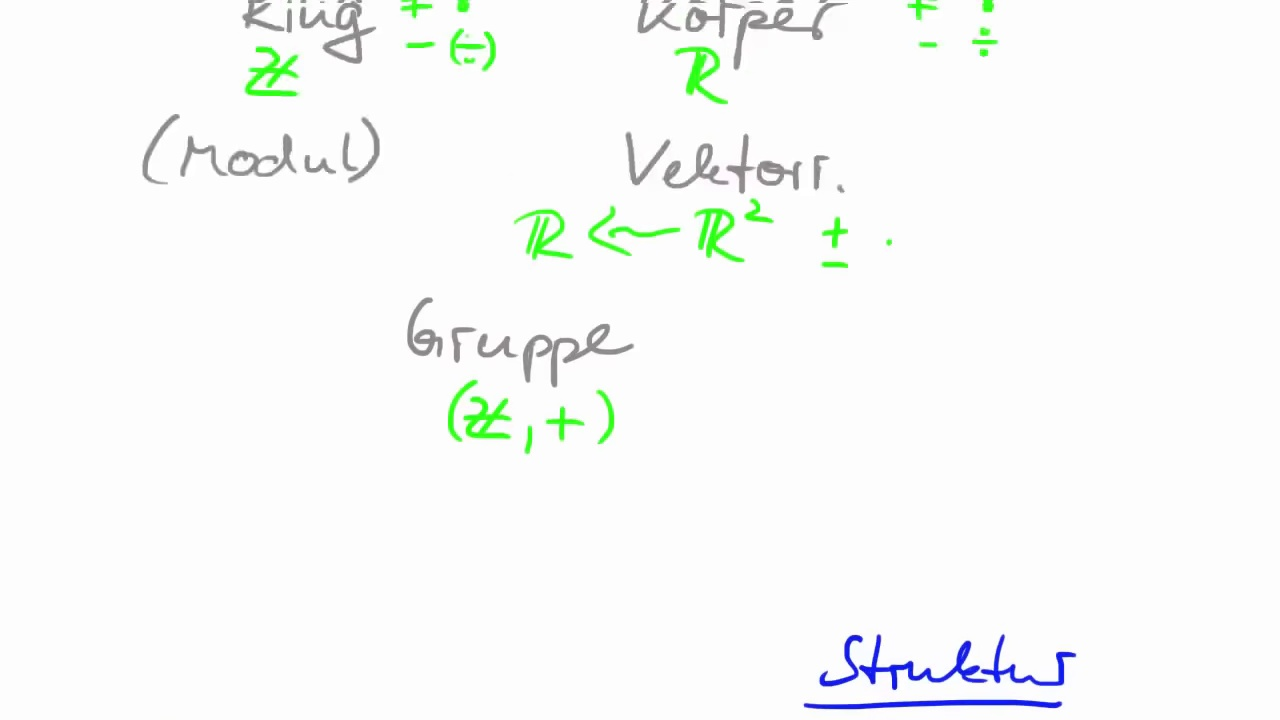 Ring + · Körper + ·
- (÷) - ÷
ℤ ℝ
(Modul) Vektorr.
ℝ ← ℝ² ± ·
Gruppe
(ℤ, +)
Struktur